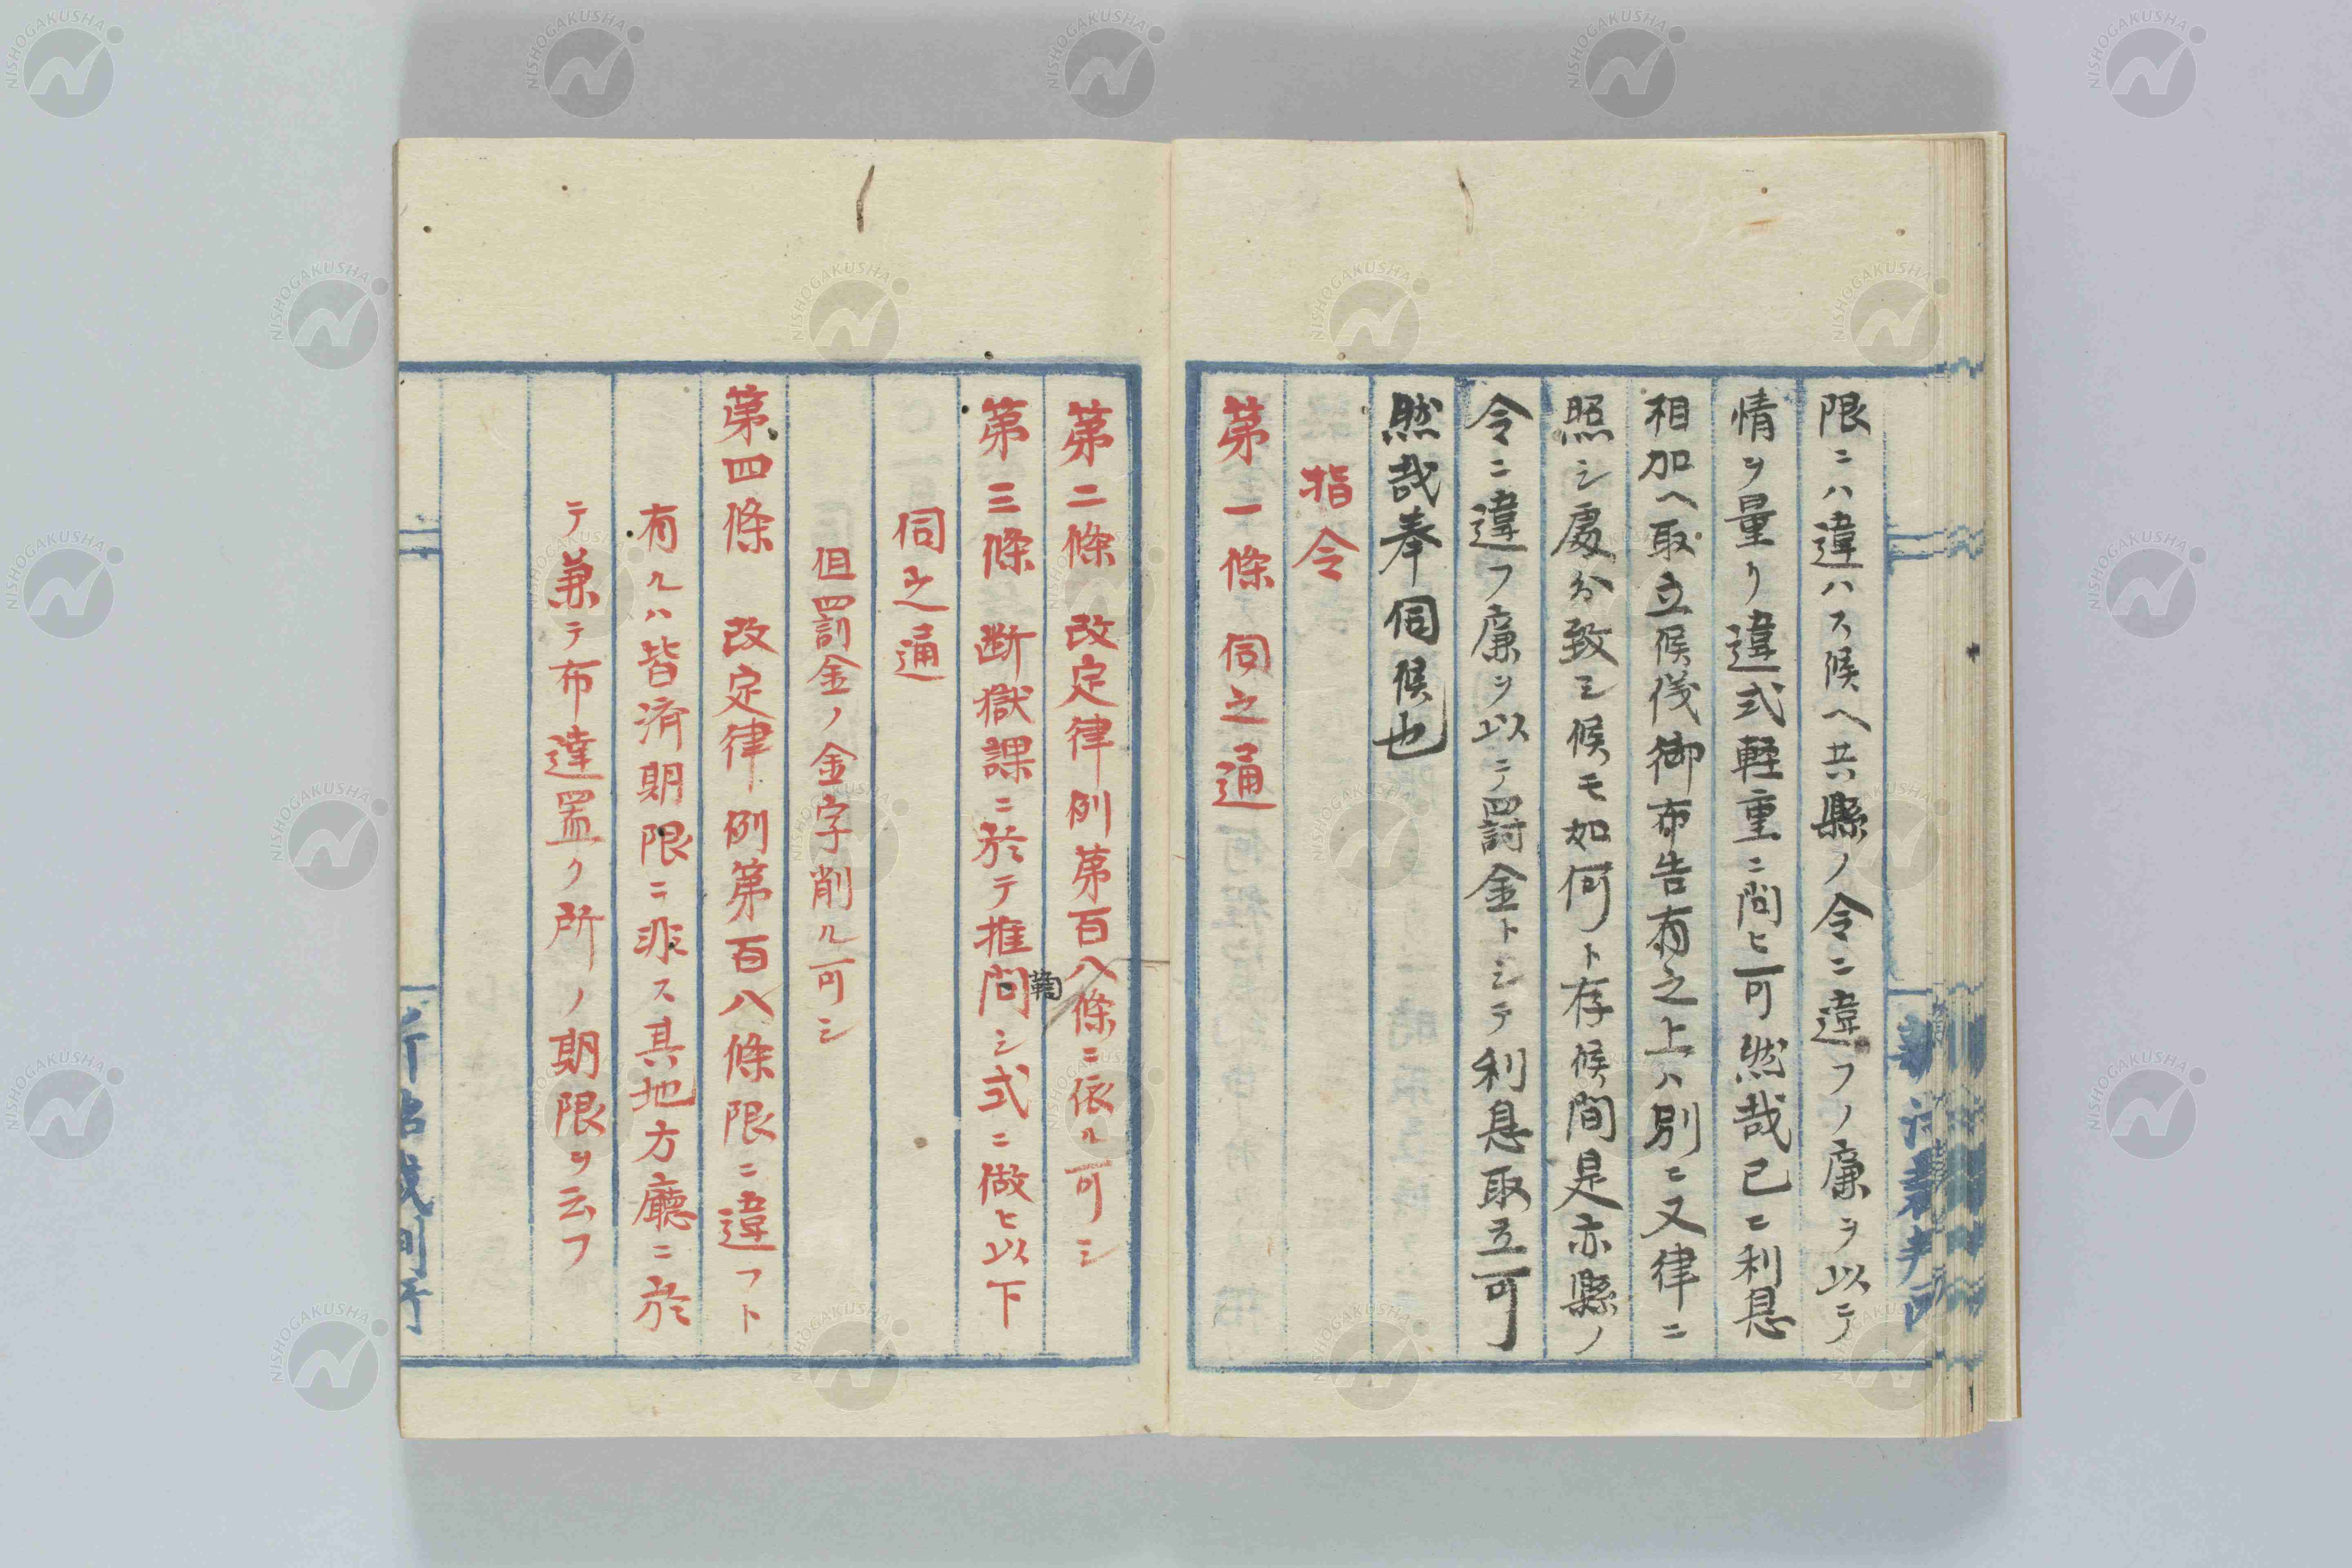 限ニハ違ハス候ヘ共縣ノ令ニ違フノ廉ヲ以テ
情ヲ量リ違式軽重ニ問ヒ可然哉已ニ利息
相加ヘ取立候儀御布告有之上ハ別ニ又律ニ
照シ處分致シ候モ如何ト存候間是亦縣ノ
令ニ違フ廉ヲ以テ罰金トシテ利息取立可
然哉奉伺候也
指令
第一條 伺之通
第二條 改定律例第百八條ニ依ル可シ
第三條 断獄課ニ於テ推問シ式ニ做ヒ以下
鞫
伺之通
但罰金ノ金字削ル可シ
第四條 改定律例第百八條限ニ違フト
有ルハ皆済期限ニ非ス其地方廳ニ於
テ兼テ布達置ク所ノ期限ヲ云フ
NISHOGAKUSHA